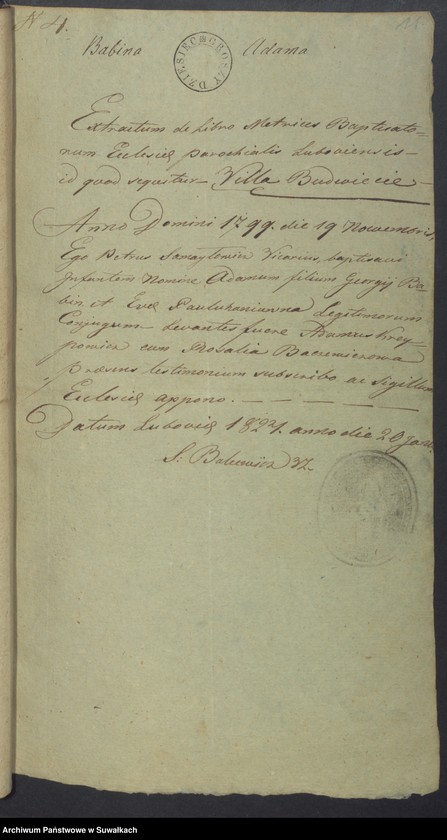 N 4.
Babina Adama
DZIESIEC GROSZY
Extractum de libro Metrices Baptisato-
rum Eclesię parochialis Luboviensis
id quod sequitur Villa Budwiecie
Anno Domini 1799. die 19 Nowembris,
Ego Petrus Samaylewicz Vicarius baptisavi
Infantem Nomine Adamum filium Georgij Ba-
bin et Evę Pauluhaniuwna Legitimorum
Conjugum Levantes fuere
cum Rosalia
Præsens testimonium subscribo ac Sigillum
Eclesię appono. — — — —
Datum Lubovię 1821. anno die 20 Janu
S. Balcewicz
Archiwum Państwowe w Suwałkach